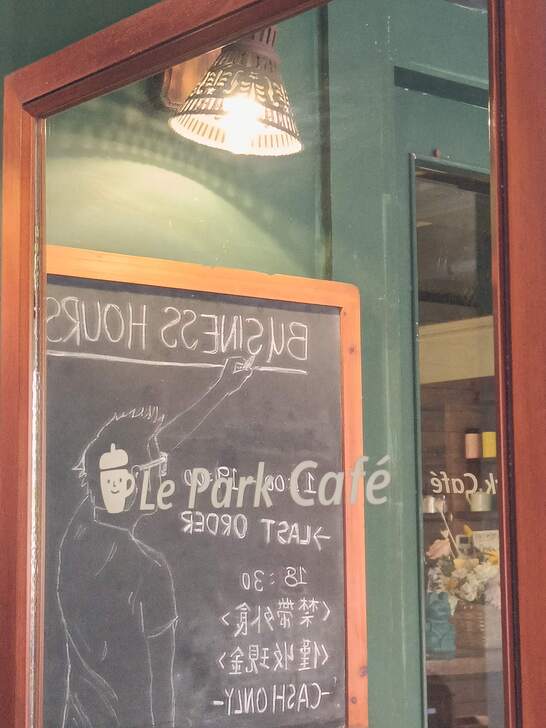 BUSINESS HOURS
19:00
Le Park Café
→LAST ORDER
18:30
<禁帶外食>
<僅收現金>
-CASH ONLY-
k Café